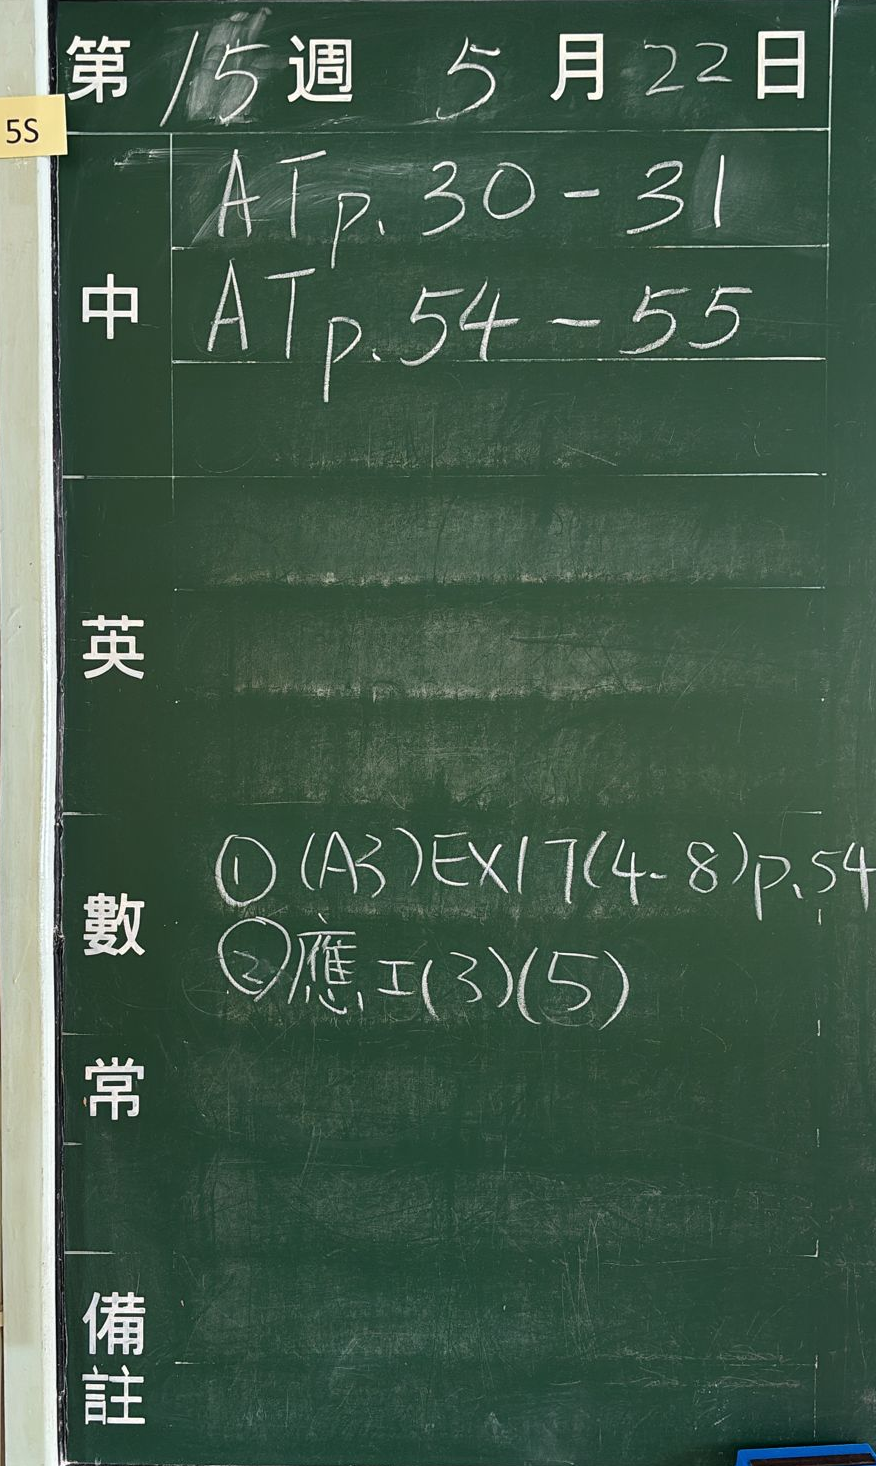 第 15 週 5 月 22 日
5S
中
AT p. 30 - 31
AT p. 54 - 55
英
數
① (A3) EX17(4-8) p.54
② 應 I (3)(5)
常
備註